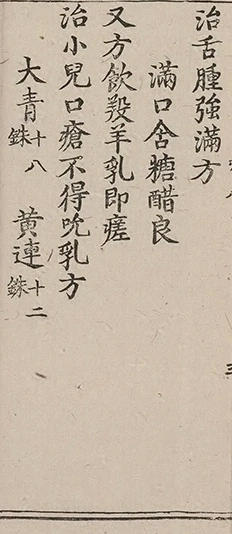 治舌腫強滿方
滿口含糖醋良
又方飲羖羊乳即瘥
治小兒口瘡不得吮乳方
大青十八銖 黃連十二銖